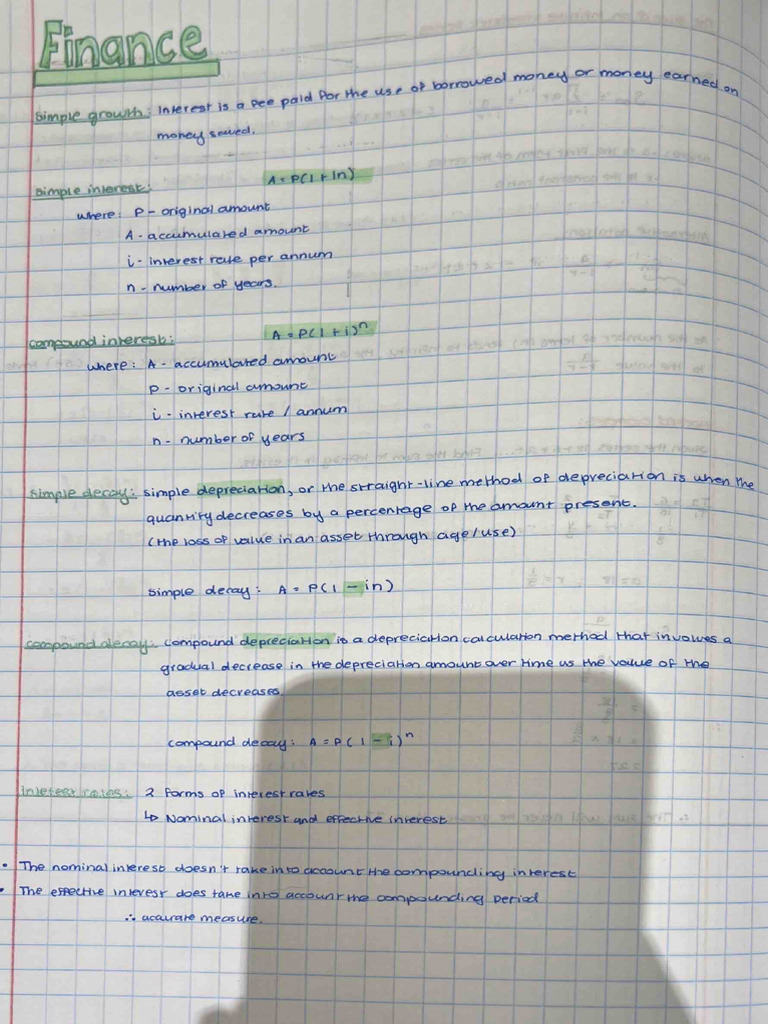 Finance
simple growth: Interest is a fee paid for the use of borrowed money or money earned on
money saved.
simple interest: A = P(1 + in)
where: P - original amount
A - accumulated amount
i - interest rate per annum
n - number of years.
compound interest: A = P(1 + i)ⁿ
where: A - accumulated amount
P - original amount
i - interest rate / annum
n - number of years
simple decay: simple depreciation, or the straight-line method of depreciation is when the
quantity decreases by a percentage of the amount present.
(the loss of value in an asset through age/use)
simple decay: A = P(1 - in)
compound decay: compound depreciation is a depreciation calculation method that involves a
gradual decrease in the depreciation amount over time as the value of the
asset decreases.
compound decay: A = P(1 - i)ⁿ
interest rates: 2 forms of interest rates
↳ Nominal interest and effective interest
• The nominal interest doesn't take into account the compounding interest
• The effective interest does take into account the compounding period
∴ accurate measure.